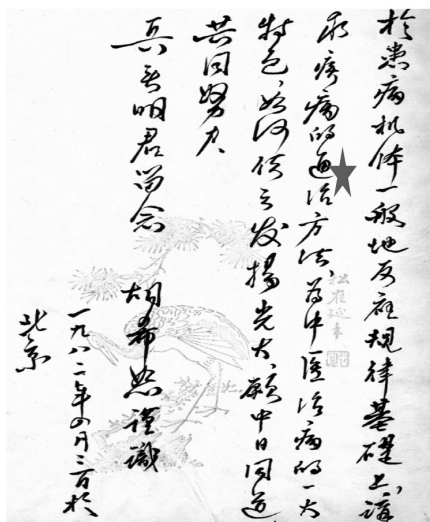 於患病机体一般地反应规律基礎上,講
求疾病的通治方法,為中医治病的一大
特色,如何使之发揚光大,願中日同道
共同努力
兵头明君留念
胡希恕謹識
一九八二年四月 日於
北京
松鹤延年